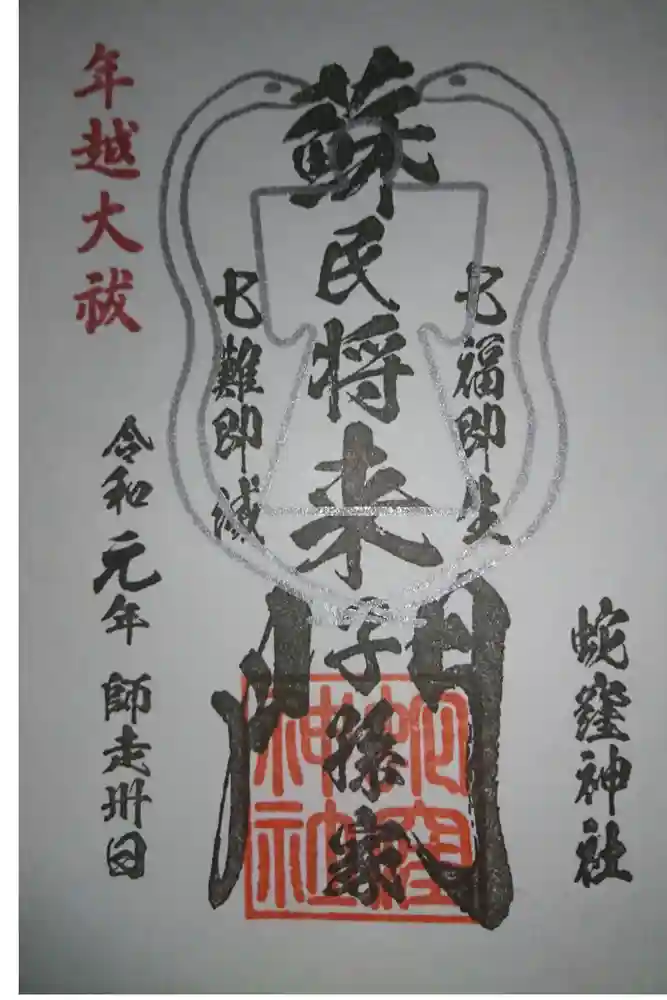 蛇窪神社
七福即生
蘇民将来子孫家門
七難即滅
年越大祓
令和元年 師走卅日
蛇窪
神社